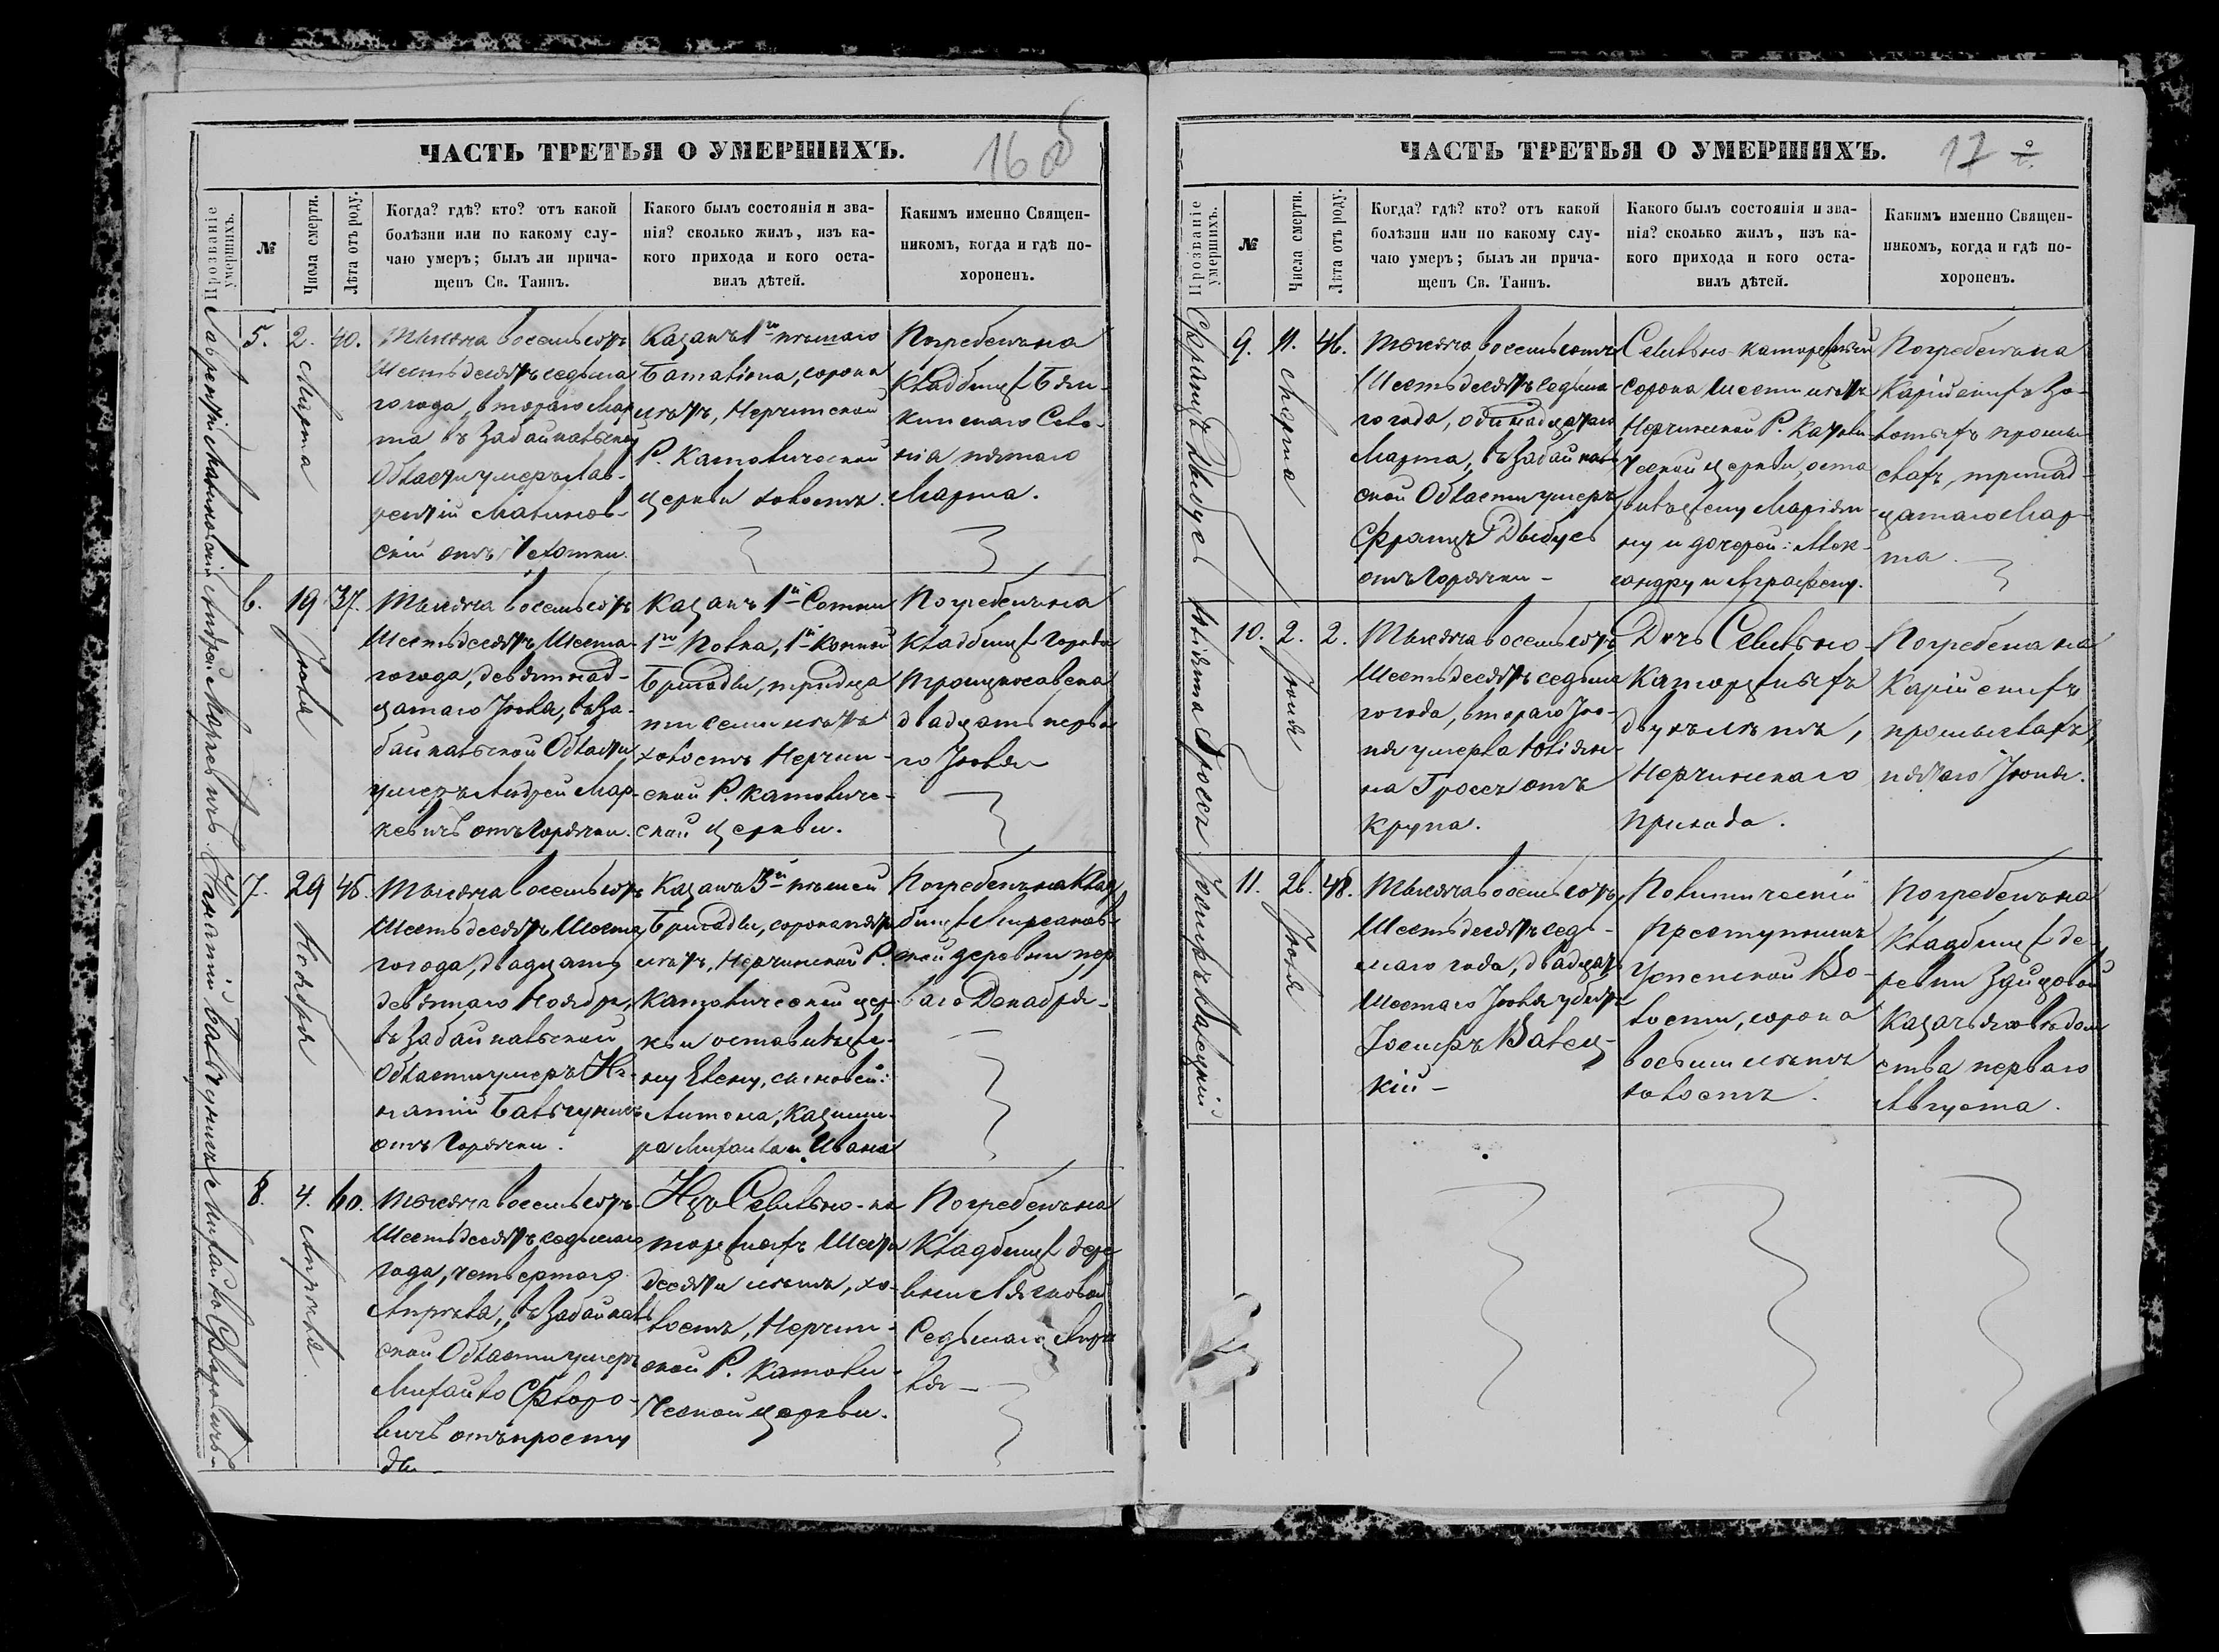 ЧАСТЬ ТРЕТЬЯ О УМЕРШИХЪ.
16 об
Прозваніе умершихъ.
№
Числа смерти.
Лѣта отъ роду.
Когда? гдѣ? кто? отъ какой
болѣзни или по какому слу-
чаю умеръ; былъ ли прича-
щенъ Св. Таинъ.
Какого былъ состоянія и зва-
нія? сколько жилъ, изъ ка-
кого прихода и кого оста-
вилъ дѣтей.
Какимъ именно Священ-
никомъ, когда и гдѣ по-
хороненъ.
Лаврентій Малиновскій
5.
2. Марта
40.
Тысяча восемьсотъ
Шестьдесятъ седьма
го года, втораго Мар
та въ Забайкальской
Области умеръ Лав-
рентій Малинов-
скій отъ чахотки.
Казакъ 1го пѣшаго
Баталіона, сорока
лѣтъ, Нерчинской
Р. Католической
церкви холостъ.
Погребенъ на
Кладбищѣ Бян-
кинскаго Селе-
нія пятаго
Марта.
Андрей Маркевичъ
6.
19 Іюля
37.
Тысяча восемьсотъ
Шестьдесятъ Шеста-
го года, девятнад-
цатаго Іюля, въ За-
байкальской Области
умеръ Андрей Мар-
кевичъ отъ горячки.
Казакъ 1й Сотни
1го Полка, 1й Конной
Бригады, тридца
ти семи лѣтъ
холостъ Нерчин-
ской Р. Католиче-
ской церкви.
Погребенъ на
Кладбищѣ города
Троицкосавска
двадцать перва
го Іюля
7.
29 Ноября
45.
Тысяча восемьсотъ
Шестьдесятъ Шеста
го года, двадцать
девятаго Ноября,
въ Забайкальской
Области умеръ Иг-
натій
отъ горячки.
Казакъ 3й пѣшей
Бригады, сорока пяти
лѣтъ, Нерчинской Р.
Католической цер-
кви оставилъ же-
ну Елену, сыновей:
Антона, Казими-
ра Михаила и Ивана
Погребенъ на Клад
бищѣ
ской деревни пер
ваго Декабря
8.
4. Апрѣля
60.
Тысяча восемьсотъ
Шестьдесятъ седьмаго
года, четвертаго
Апрѣля, въ Забайкаль
ской Области умеръ
Михайло Флоро-
вичъ отъ просту
ды
Изъ Сыльно-ка
торжныхъ Шести
десяти лѣтъ, хо-
лостъ, Нерчин-
ской Р. Католи-
ческой церкви.
Погребенъ на
Кладбищѣ дере
вни
Седьмаго Апрѣ
ля
ЧАСТЬ ТРЕТЬЯ О УМЕРШИХЪ.
17
Прозваніе умершихъ.
№
Числа смерти.
Лѣта отъ роду.
Когда? гдѣ? кто? отъ какой
болѣзни или по какому слу-
чаю умеръ; былъ ли прича-
щенъ Св. Таинъ.
Какого былъ состоянія и зва-
нія? сколько жилъ, изъ ка-
кого прихода и кого оста-
вилъ дѣтей.
Какимъ именно Священ-
никомъ, когда и гдѣ по-
хороненъ.
Францъ Дыбусъ
9.
11. Марта
46.
Тысяча восемьсотъ
Шестьдесятъ седьма
го года, одинадцатаго
Марта, въ Забайкаль
ской Области умеръ
Францъ Дыбусъ
отъ горячки
Сыльно-каторжный
сорока шести лѣтъ
Нерчинской Р. Католи
ческой церкви, оста
вилъ жену Маріан-
ну и дочерей: Алек-
сандру и Аграфену.
Погребенъ на
Карійскихъ Зо-
лотыхъ промы
слахъ, тринад-
цатаго Мар-
та
Юліяна Гроссъ
10.
2. Іюня
2.
Тысяча восемьсотъ
Шестьдесятъ седьма
го года, втораго Ію-
ня умерла Юліян-
на Гроссъ отъ
крупа.
Дочь Сыльно-
Каторжныхъ
двухъ лѣтъ,
Нерчинскаго
прихода.
Погребена на
Карійскихъ
промыслахъ,
пятаго Іюня.
11.
26. Іюля
48.
Тысяча восемьсотъ
Шестьдесятъ седь-
маго года, двадцать
Шестаго Іюля убитъ
Іосифъ Валец-
кій
Политическій
преступникъ
Успенской Во-
лости, сорока
восьми лѣтъ
холостъ.
Погребенъ на
Кладбищѣ де-
ревни
Казачьяго вѣдом
ства перваго
Августа.